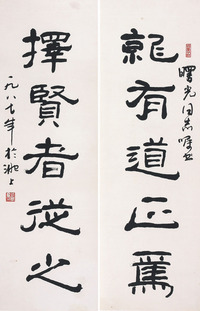 曙光同志嘱
就有道正焉
擇賢者從之
一九八七年於上